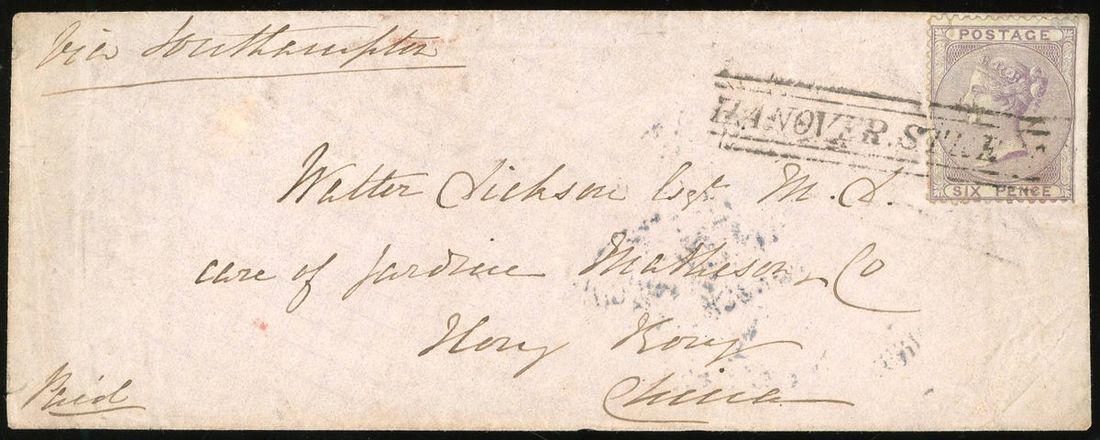 Via Southampton
POSTAGE
HANOVER.STREE
SIX PENCE
Walter Dickson Esqr. M.D.
care of Jardine Matheson & Co
Hong Kong
China
Paid